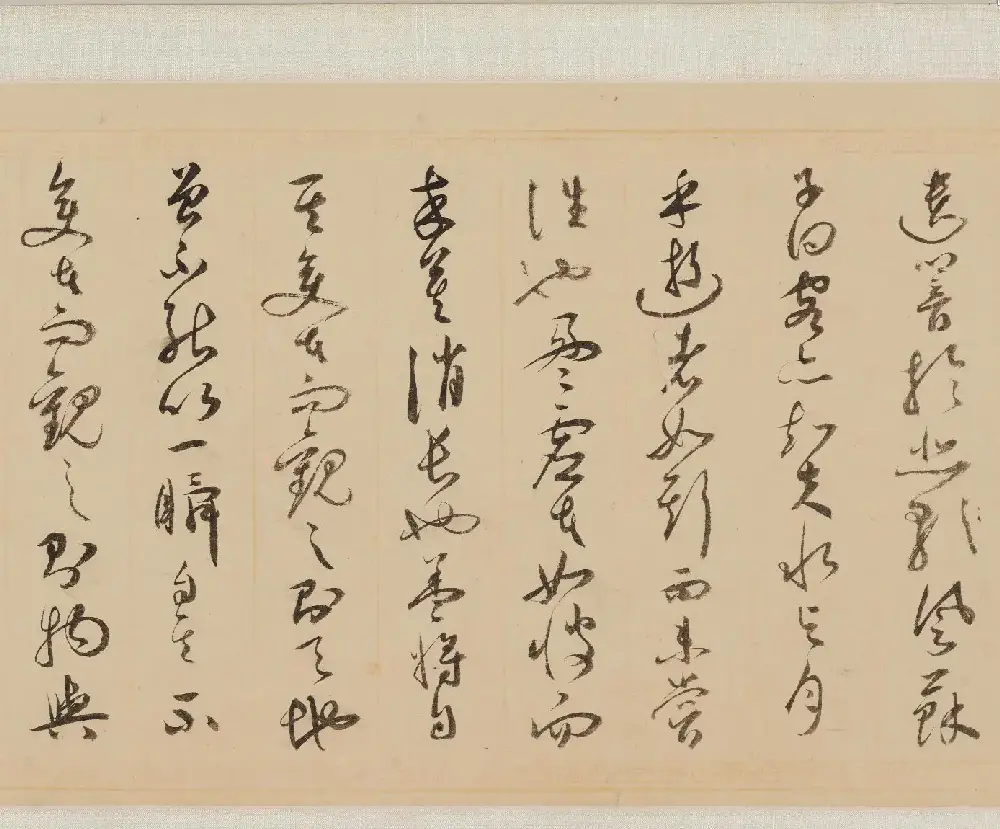 遺響於悲風蘇
子曰客亦知夫水與月
乎逝者如斯而未嘗
往也盈虛者如彼而
卒莫消長也蓋將自
其變者而觀之則天地
曾不能以一瞬自其不
變者而觀之則物與